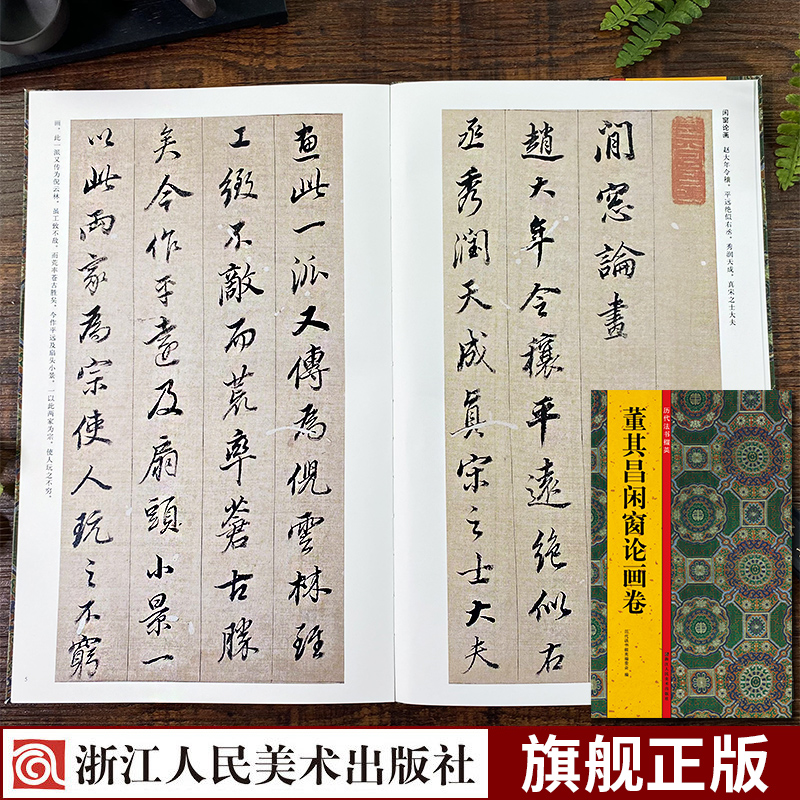 闲窗论画　赵大年令穰，平远绝似右丞，秀润天成，真宋之士大夫
閒窓論畫
趙大年令穰平遠絶似右
丞秀潤天成真宋之士大夫
畫此一派又傳為倪雲林雖
工緻不敵而荒率蒼古勝
矣今作平遠及扇頭小景一
以此兩家為宗使人玩之不窮
画。此一派又传为倪云林，虽工致不敌，而荒率苍古胜矣。今作平远及扇头小景，一以此两家为宗，使人玩之不穷，
5
历代法书撷英
董其昌闲窗论画卷
浙江人民美术出版社
浙江人民美术出版社
旗舰正版